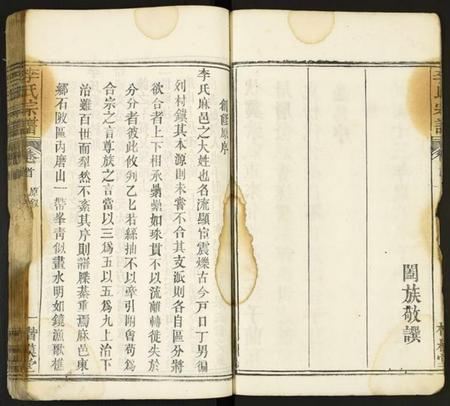 闔族敬譔
創譜原序
李氏麻邑之大姓也名流顯宦震爍古今戸口丁男徧
列村鎮其本源則未嘗不合其支派則各自區分將
欲合者上下相承纍纍如珠貫不以流離轉徙失於
分分者彼此攸列乙乙若絲抽不以牽引附會苟為
合宗之言尊族之言當以三為五以五為九上治下
治雖百世而犁然不紊其序則譜牒綦重焉麻邑東
鄉石陂區內磨山一帶峯青似畫水明如鏡漁歌樵
李氏宗譜
卷首
原敘
一
李氏宗譜